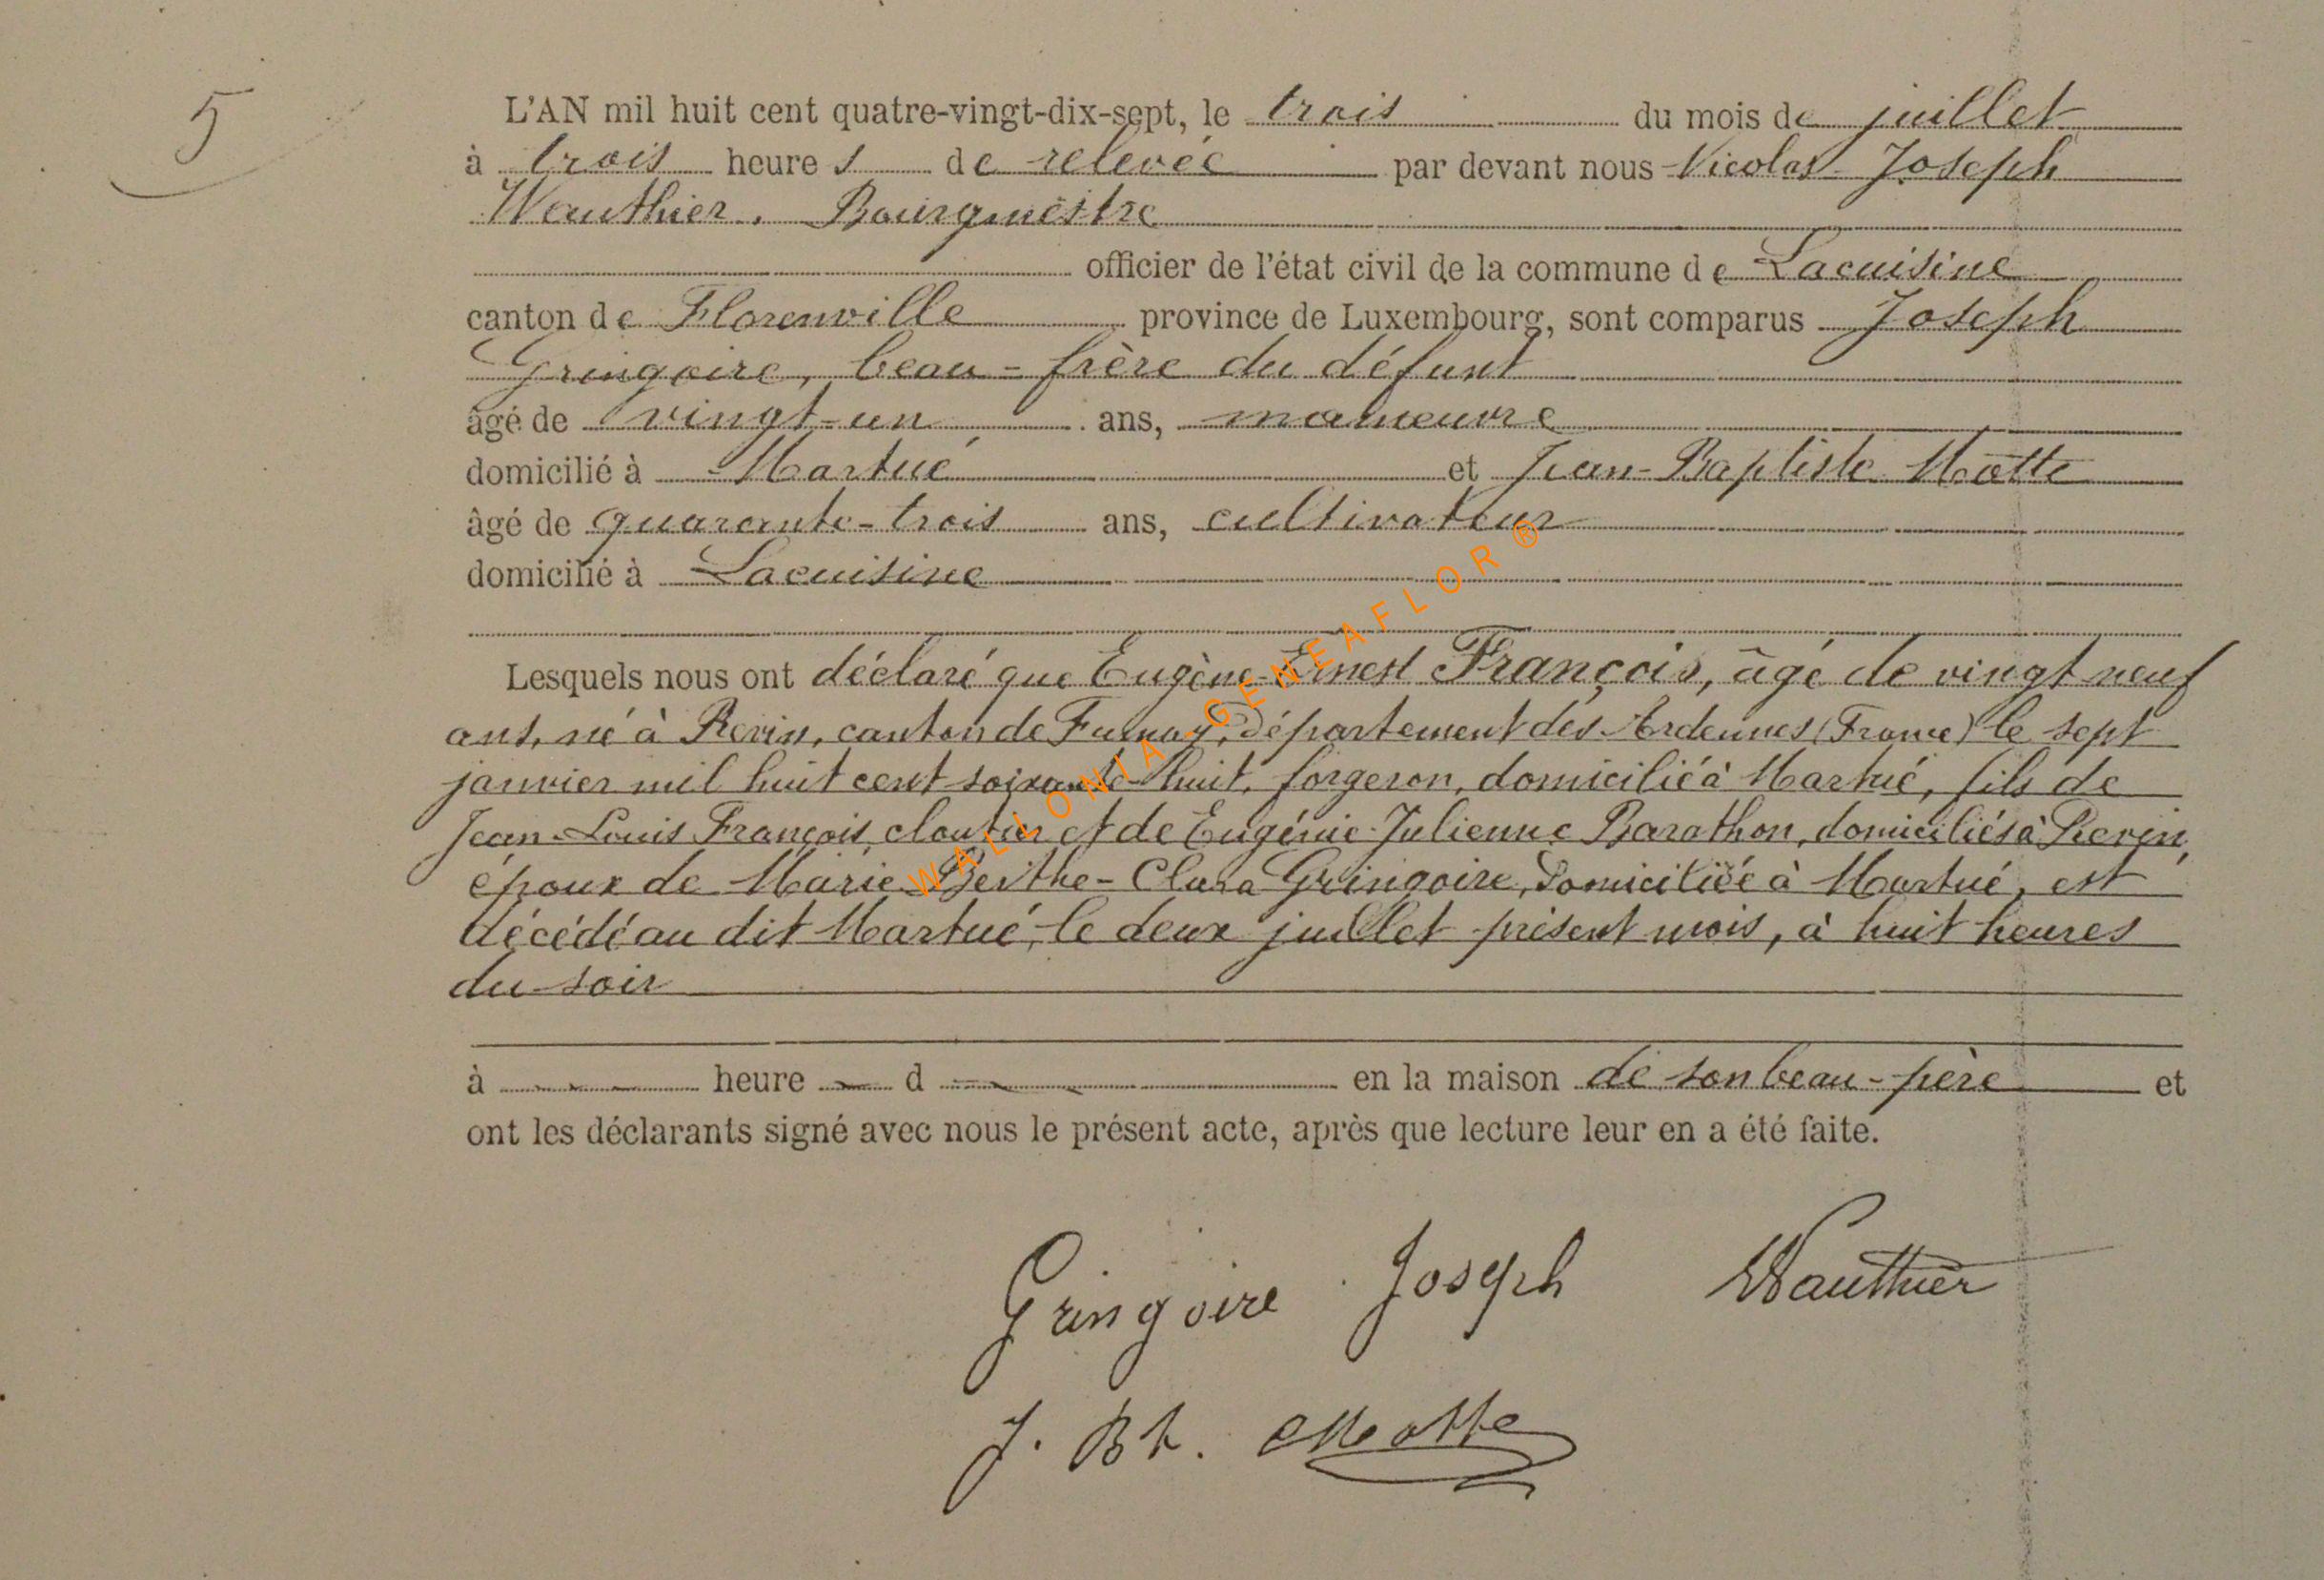 5
L'AN mil huit cent quatre-vingt-dix-sept, le trois du mois de juillet
à trois heures de relevée par devant nous Nicolas Joseph
Wauthier, Bourgmestre
officier de l'état civil de la commune de Lacuisine
canton de Florenville province de Luxembourg, sont comparus Joseph
Gringoire, beau-frère du défunt
âgé de vingt-un ans, manœuvre
domicilié à Martué et Jean-Baptiste Motte
âgé de quarante-trois ans, cultivateur
domicilié à Lacuisine
Lesquels nous ont déclaré que Eugène-Ernest François, âgé de vingt neuf
ans, né à Revin, canton de Fumay, Département des Ardennes (France) le sept
janvier mil huit cent soixante-huit, forgeron, domicilié à Martué, fils de
Jean-Louis François cloutier et de Eugénie-Julienne Barathon, domiciliés à Revin,
époux de Marie-Berthe-Clara Gringoire, domiciliée à Martué, est
décédé au dit Martué, le deux juillet présent mois, à huit heures
du soir
à heure d en la maison de son beau-père et
ont les déclarants signé avec nous le présent acte, après que lecture leur en a été faite.
Gringoire Joseph Wauthier
J. Bt. Motte
WALLONIA GENEAFLOR ®